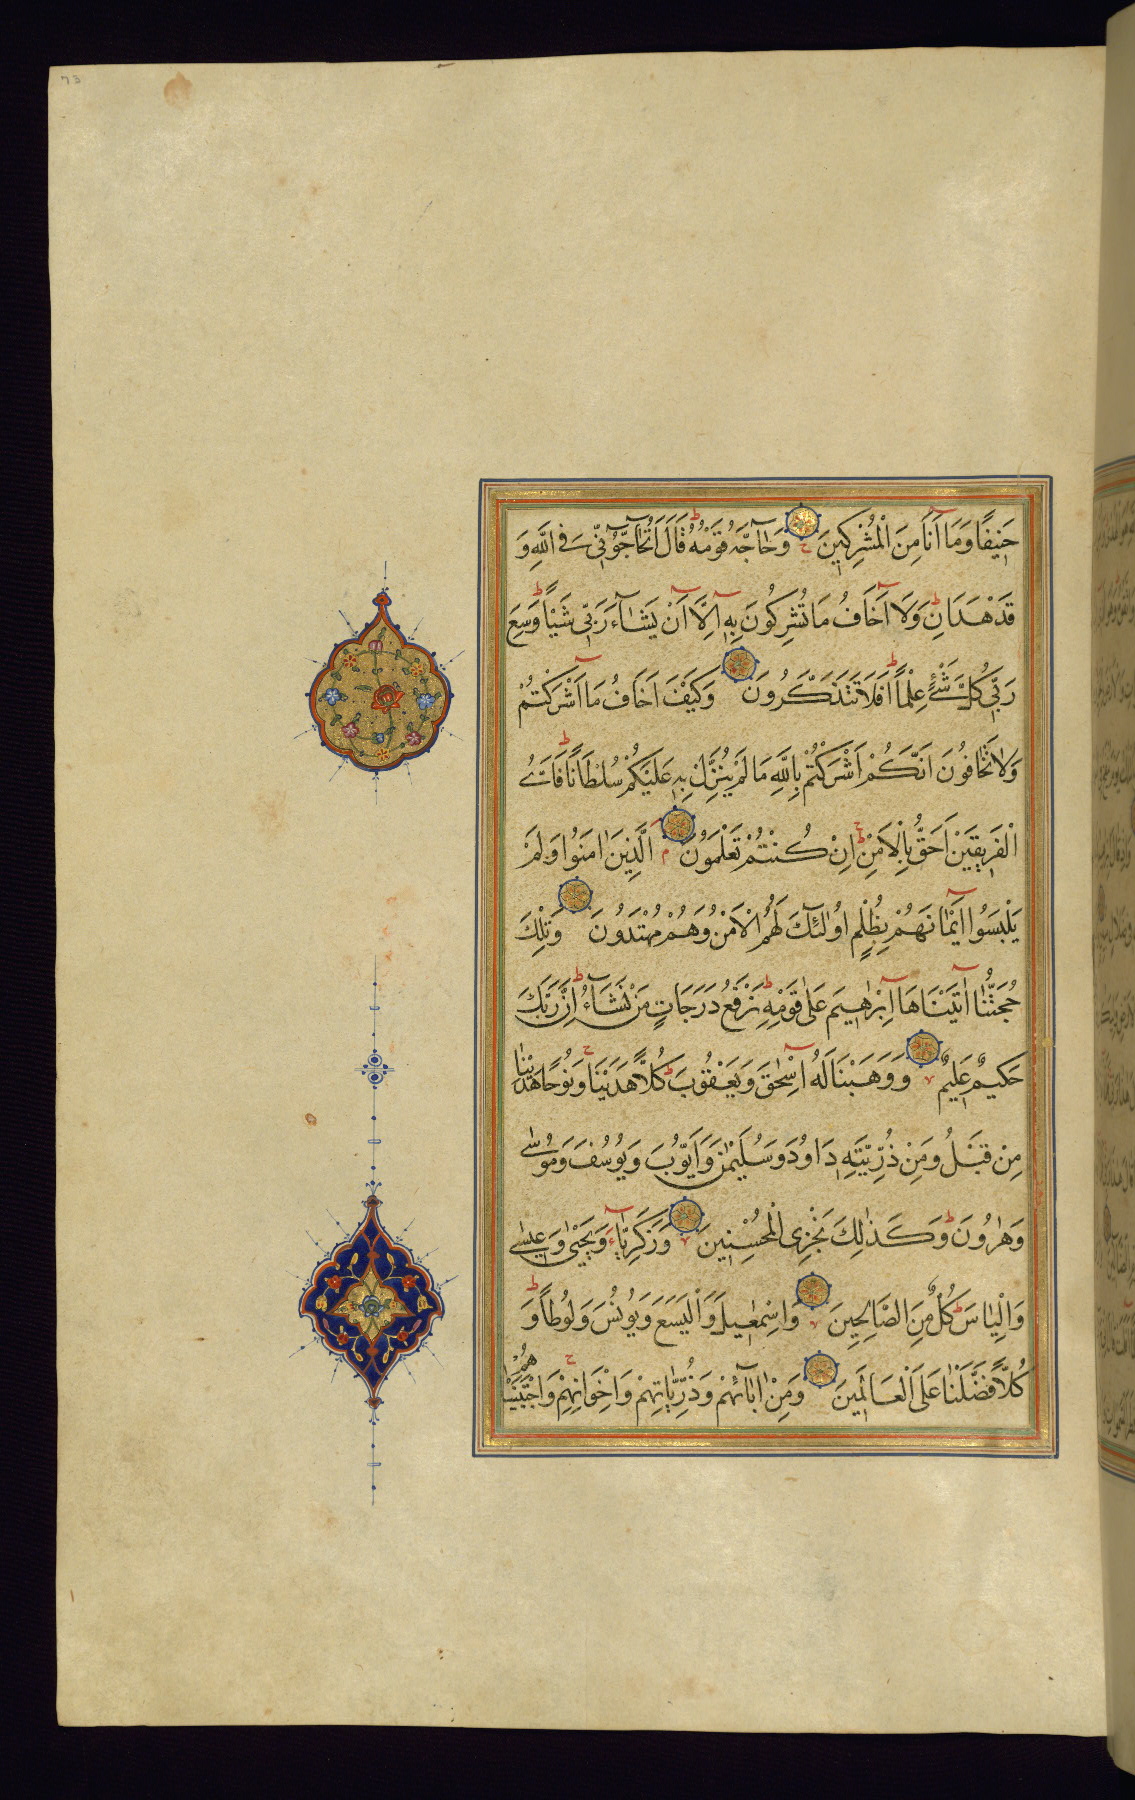 حَنِيفًا وَمَا أَنَا مِنَ الْمُشْرِكِينَ وَحَاجَّهُ قَوْمُهُ قَالَ أَتُحَاجُّونِّي فِي اللَّهِ وَ
قَدْ هَدَانِ وَلَا أَخَافُ مَا تُشْرِكُونَ بِهِ إِلَّا أَنْ يَشَاءَ رَبِّي شَيْئًا وَسِعَ
رَبِّي كُلَّ شَيْءٍ عِلْمًا أَفَلَا تَتَذَكَّرُونَ وَكَيْفَ أَخَافُ مَا أَشْرَكْتُمْ
وَلَا تَخَافُونَ أَنَّكُمْ أَشْرَكْتُمْ بِاللَّهِ مَا لَمْ يُنَزِّلْ بِهِ عَلَيْكُمْ سُلْطَانًا فَأَيُّ
الْفَرِيقَيْنِ أَحَقُّ بِالْأَمْنِ إِنْ كُنْتُمْ تَعْلَمُونَ الَّذِينَ اٰمَنُوا وَلَمْ
يَلْبِسُوا إِيمَانَهُمْ بِظُلْمٍ أُولٰئِكَ لَهُمُ الْأَمْنُ وَهُمْ مُهْتَدُونَ وَتِلْكَ
حُجَّتُنَا اٰتَيْنَاهَا إِبْرٰهِيمَ عَلٰى قَوْمِهِ نَرْفَعُ دَرَجَاتٍ مَنْ نَشَاءُ إِنَّ رَبَّكَ
حَكِيمٌ عَلِيمٌ وَوَهَبْنَا لَهُ إِسْحٰقَ وَيَعْقُوبَ كُلًّا هَدَيْنَا وَنُوحًا هَدَيْنَا
مِنْ قَبْلُ وَمِنْ ذُرِّيَّتِهِ دَاوُدَ وَسُلَيْمٰنَ وَأَيُّوبَ وَيُوسُفَ وَمُوسٰى
وَهٰرُونَ وَكَذٰلِكَ نَجْزِي الْمُحْسِنِينَ وَزَكَرِيَّاءَ وَيَحْيٰى وَعِيسٰى
وَإِلْيَاسَ كُلٌّ مِنَ الصَّالِحِينَ وَإِسْمٰعِيلَ وَالْيَسَعَ وَيُونُسَ وَلُوطًا وَ
كُلًّا فَضَّلْنَا عَلَى الْعَالَمِينَ وَمِنْ اٰبَائِهِمْ وَذُرِّيَّاتِهِمْ وَإِخْوَانِهِمْ وَاجْتَبَيْنَاهُمْ
73